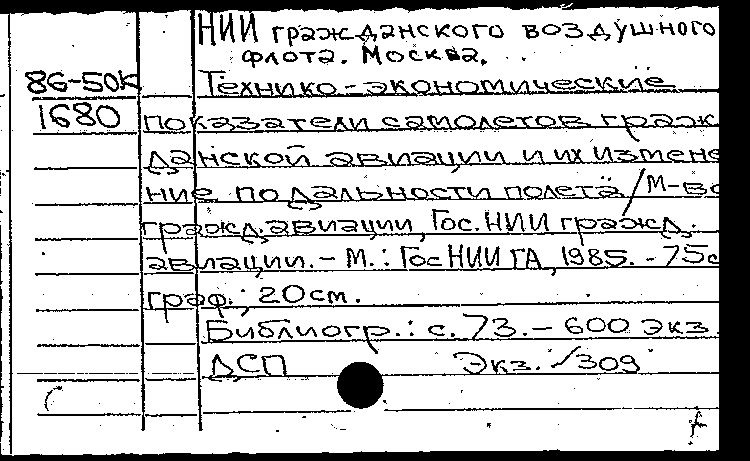 НИИ гражданского воздушного
флота. Москва.
86-50К Технико-экономические
1680 показатели самолетов граж
данской авиации и их измене
ние по дальности полета / М-во
гражд. авиации, Гос. НИИ гражд.
авиации. - М.: Гос НИИ ГА, 1985. - 75с
граф.; 20см.
Библиогр.: с. 73. - 600 экз.
ДСП Экз. √309